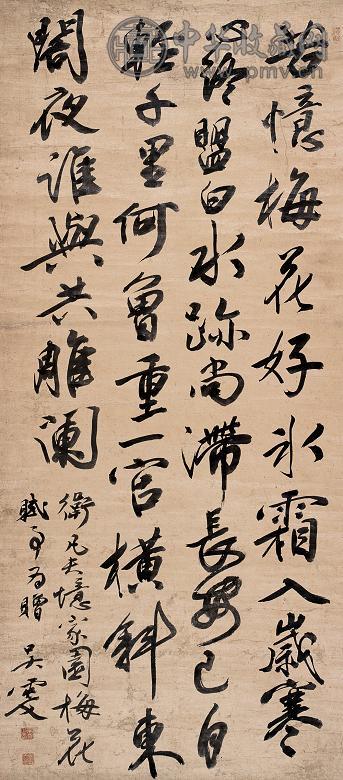 中华收藏网
www.pmv.cn
憶梅花好冰霜入歲寒
心終盟白水跡尚滯長安已自
輕千里何曾重一官橫斜東
閣夜誰與共雕闌
衛凡夫憶家園梅花
賦為贈 吳雯